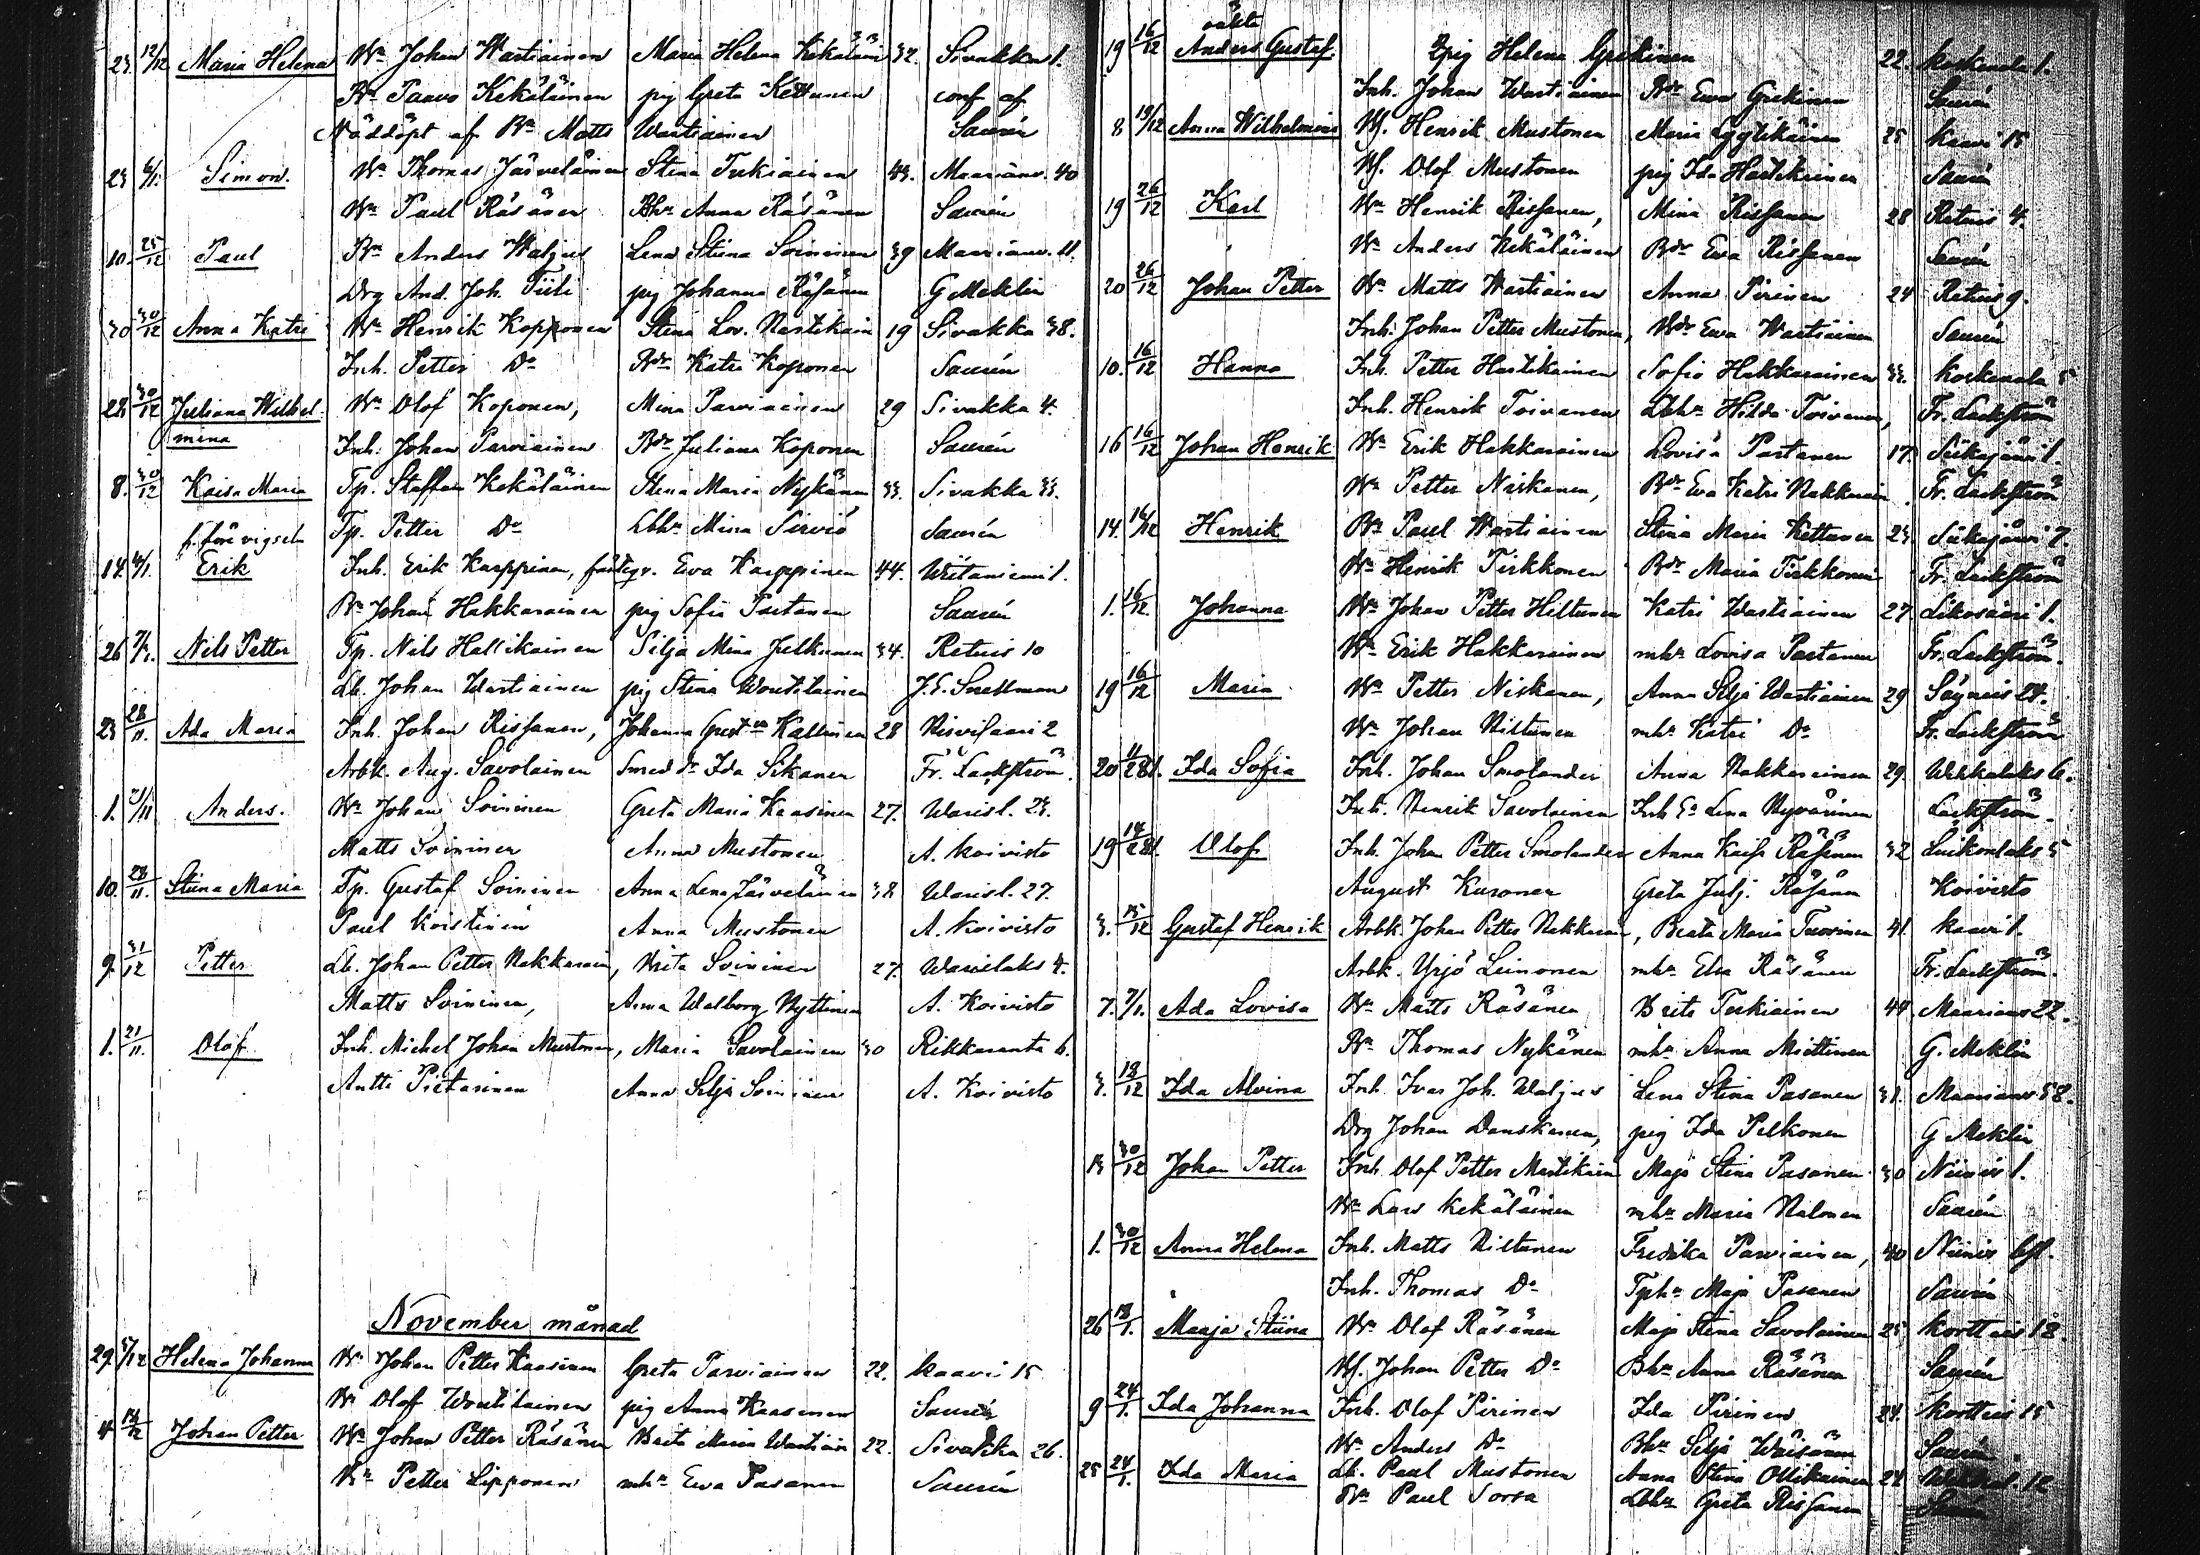 23. 12/12 Maria Helena Bn Johan Wartiainen Maria Helena Kekäläin 32. Sivakka 1.
Bn Paavo Kekäläinen pig Greta Kettunen conf af
Nöddöpt af Bn Matts Wartiainen Saurén
23 6/1. Simon. Bn Thomas Järveläinen Stina Tukiainen 43. Maarianv. 40
Bn Paul Räsänen Bhu Anna Räsänen Saurén
10. 25/12 Paul Bn Anders Waljus Lena Stiina Soininen 39 Maarianv. 11.
Drg And. Joh. Tiili pig Johanna Räsänen G Meklin
30 30/12 Anna Katri Bn Henrik Kopponen Stina Lov. Hartikain 19 Sivakka 38.
Inh. Petter Do Bdr Katri Koponen Saurén
22. 30/12 Juliana Wilhel- Bn Olof Koponen, Mina Parviainen 29 Sivakka 4.
mina Inh. Johan Parviainen Bdr Juliana Koponen Saurén
8. 30/12 Kaisa Maria Tp. Staffan Kekäläinen Stina Maria Nykänen 33. Sivakka 33.
f. före vigseln Tp. Petter Do Lbhu Mina Serviö Saurén
14. 6/1. Erik Inh. Erik Karppinen, Eva Karppinen 44. Wiitaniemi 1.
Bn Johan Hakkarainen pig Sofia Partanen Saurén
26 7/1. Nils Petter Tp. Nils Hallikainen Silja Mina Julkunen 34. Retuis 10
Lb. Johan Wartiainen pig Stina Woutilainen J. E. Snellman
23 28/11. Ada Maria Inh. Johan Rissanen, Johanna Gust Kallunen 28 Niivisaari 2
Arbk. Aug. Savolainen Smed Ida Sikanen Fr. Lackström.
1. 21/11 Anders. Bn Johan Soininen Greta Maria Kaasinen 27. Warisl. 23.
Matts Soininen Anna Mustonen A. Koivisto
10. 23/11. Stiina Maria Tp. Gustaf Soininen Anna Lena Järveläinen 38 Warisl. 27.
Paul Koistinen Anna Mustonen A. Koivisto
9. 31/12 Petter Lb. Johan Petter Hakkarain, Brita Soininen 27. Warislaks 4.
Matts Soininen, Anna Walborg Hyttinen A. Koivisto
1. 21/11. Olof. Inh. Michel Johan Mustonen, Maria Savolainen 30 Rikkaranta 6.
Antti Pietarinen Anna Silja Soininen A. Koivisto
November månad
29. 5/12 Helena Johanna Bn Johan Petter Kaasinen Greta Parviainen 22. Kaavi 15
Bn Olof Woutilainen pig Anna Kaasinen Saurén
4 12/12 Johan Petter Bn Johan Petter Räsänen Brita Maria Wartiain 22. Sivakka 26.
Bn Petter Lipponen mhu Eva Pasanen Saurén
oäkta
19 16/12 Anders Gustaf. pig Helena Grekinen 22. Koskenala 1.
Inh. Johan Wartiainen Bdr Eva Grekinen Saurén
8 13/12 Anna Wilhelmina Bf. Henrik Mustonen Maria Lyytikäinen 25 Kaavi 15
Bf. Olof Mustonen pig Ida Hartikainen Saurén
19 26/12 Karl Bn Henrik Rissanen, Mina Rissanen 28 Retuis 4.
Bn Anders Kekäläinen Bdr Eva Rissanen Saurén
20 26/12 Johan Petter Bn Matts Wartiainen Anna Pirinen 24 Retuis 9.
Inh. Johan Petter Mustonen, Bdr Eva Wartiainen Saurén
10. 16/12 Hanna Inh. Petter Hartikainen Sofia Hakkarainen 33. Koskenala 5
Inh. Henrik Toivanen Lbhu Hilda Toivanen, Fr. Lackström
16 16/12 Johan Henrik Bn Erik Hakkarainen Lovisa Partanen 17. Siikajärvi 1.
Bn Petter Niskanen, Bdr Eva Katri Hakkarain. Fr. Lackström
14. 16/12 Henrik Bn Paul Wartiainen Stina Maria Kettunen 23. Siikajärvi 7.
Bn Henrik Tirkkonen Bdr Maria Tirkkonen Fr. Lackström
1. 16/12. Johanna Bn Johan Petter Hiltunen Katri Wartiainen 27. Likosaari 1.
Bn Erik Hakkarainen mhu Lovisa Partanen Fr. Lackström.
19 16/12 Maria Bn Petter Niskanen, Anna Silja Wartiainen 29 Säyneis 24.
Bn Johan Hiltunen mhu Katri Do Fr. Lackström
20 11/28 Ida Sofia Inh. Johan Smolander Anna Hakkarainen 29. Wehkalaks 6.
Inh. Henrik Savolainen Inh Lena Hyvärinen Lackström.
19 14/28 Olof Inh. Johan Petter Smolander Anna Kaisa Räsänen 32 Luikonlaks 5
August Kuronen Greta Julj. Räsänen Koivisto
3. 15/12 Gustaf Henrik Arbk. Johan Petter Hakkarain, Beata Maria Tuovinen 41. Kaavi 1.
Arbk. Yrjö Leinonen mhu Elsa Räsänen Fr. Lackström.
7. 7/1. Ada Lovisa Bn Matts Räsänen Brita Tukiainen 44 Maarianv 22.
Bn Thomas Nykänen mhu Anna Miettinen G. Meklin
3. 13/12 Ida Alvina Inh. Ivar Joh. Waljus Lena Stina Pasanen 31. Maarianv 58.
Drg Johan Danskanen, pig Ida Pelkonen G Meklin
13 30/12 Johan Petter Inh. Olof Petter Martikain Maja Stina Pasanen 30 Niinis 1.
Bn Lars Kekäläinen mhu Maria Halonen Saurén
1. 30/12 Anna Helena Inh. Matts Hiltunen Fredrika Parviainen, 40 Niinis
Inh. Thomas Do Tphu Maja Pasanen Saurén
26 13/1. Maaja Stiina Bn Olof Räsänen Maja Stina Savolainen 25 Kortteis 12.
Bf. Johan Petter Do Bhu Anna Räsänen Saurén
9 24/1. Ida Johanna Inh. Olof Pirinen Ida Pirinen 24. Kortteis 15
Bn Anders Do Bhu Silja Wäisänen Saurén
25 24/1. Ida Maria Lb. Paul Mustonen Anna Stina Ollikainen 24
Bn Paul Sorsa Lbhu Greta Rissanen Saurén